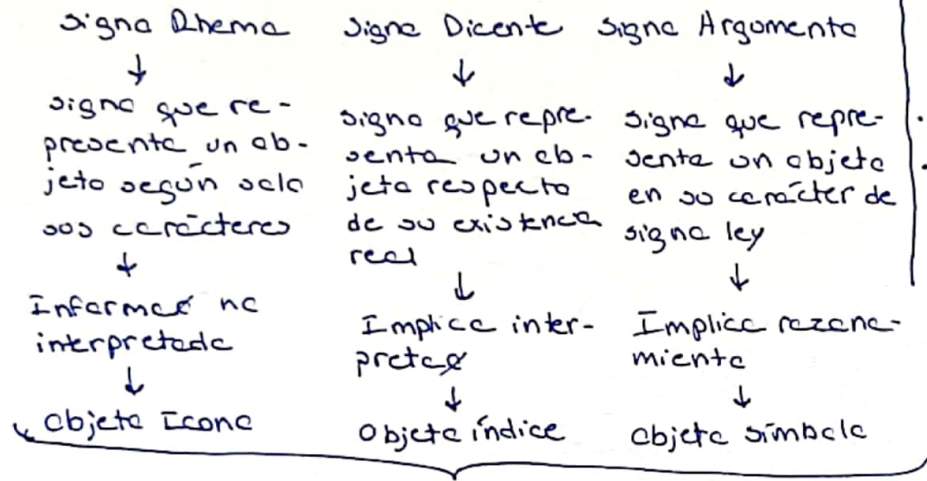 Signo Rhema
↓
signo que re-
presenta un ob-
jeto según solo
sus carácteres
↓
Informac∅ no
interpretada
↓
Objeto Icono
Signo Dicente
↓
signo que repre-
senta un ob-
jeto respecto
de su existencia
real
↓
Implica inter-
pretac∅
↓
Objeto índice
Signo Argumento
↓
signo que repre-
senta un objeto
en su carácter de
signo ley
↓
Implica razona-
miento
↓
objeto símbolo